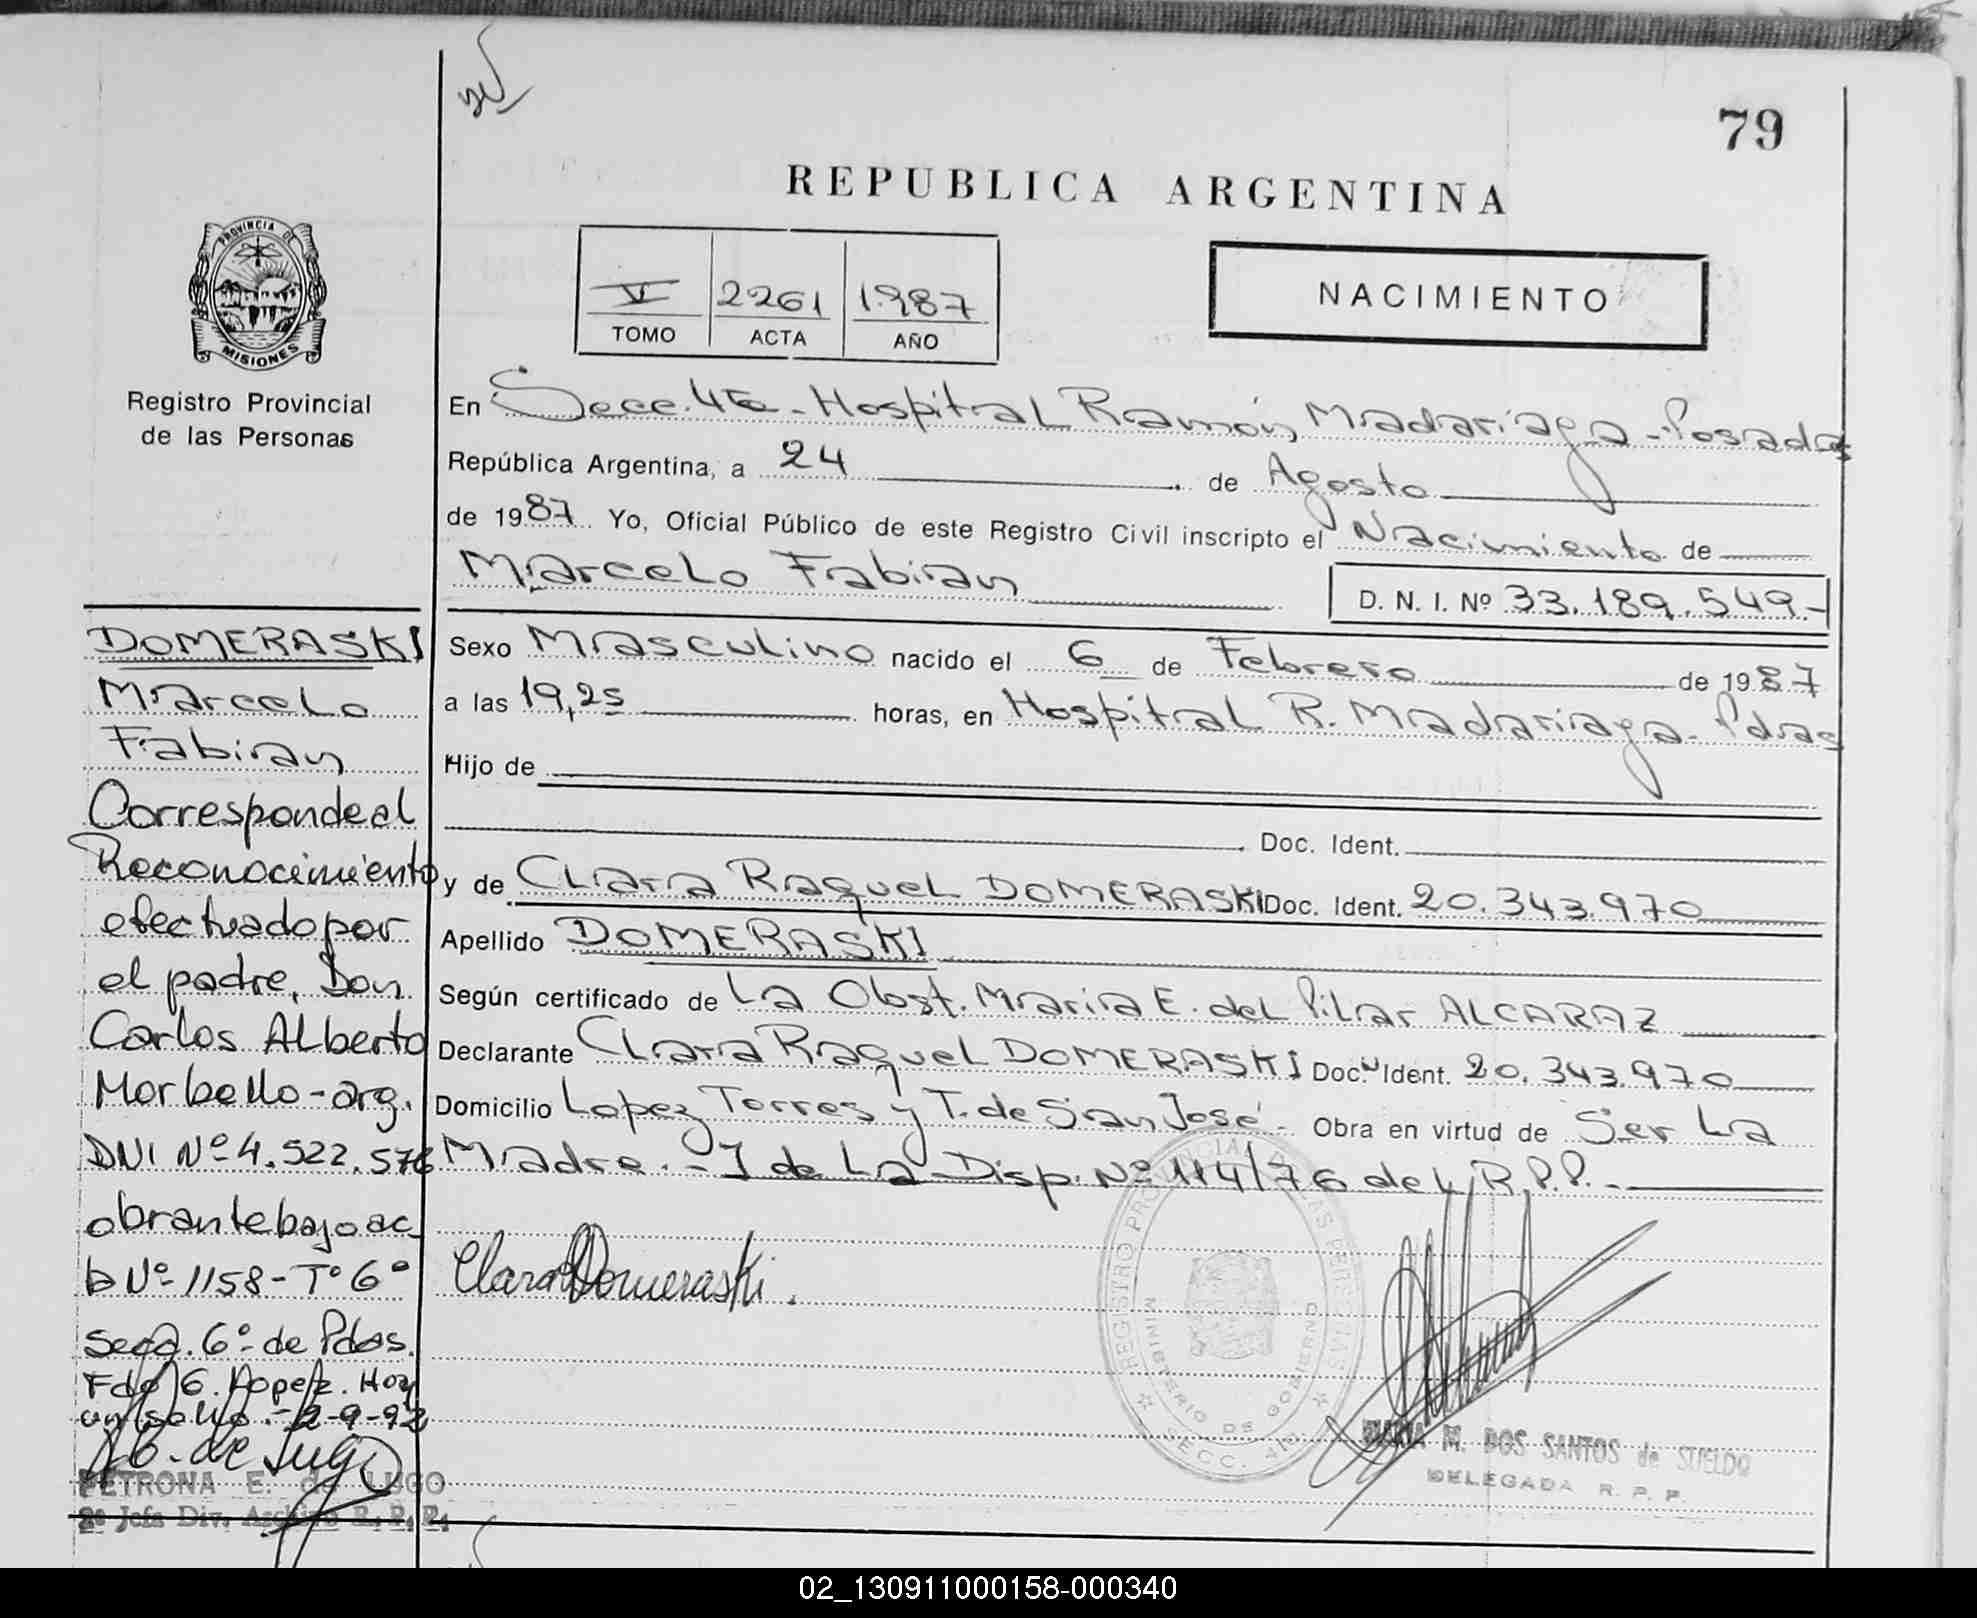 79
REPUBLICA ARGENTINA
PROVINCIA DE
MISIONES
Registro Provincial
de las Personas
V 2261 1987
TOMO ACTA AÑO
NACIMIENTO
En Secc. 4ta - Hospital Ramón Madariaga - Posadas
República Argentina, a 24 de Agosto
de 1987 Yo, Oficial Público de este Registro Civil inscripto el Nacimiento de
Marcelo Fabian D. N. I. Nº 33.189.549.-
Sexo Masculino nacido el 6 de Febrero de 1987
a las 19,25 horas, en Hospital R. Madariaga - Pdas
Hijo de
Doc. Ident.
y de Clara Raquel DOMERASKI Doc. Ident. 20.343.970
Apellido DOMERASKI
Según certificado de La Obst. Maria E. del Pilar ALCARAZ
Declarante Clara Raquel DOMERASKI Doc. Ident. 20.343.970
Domicilio Lopez Torres y T. de San José - Obra en virtud de Ser La
Madre. - I de La Disp. Nº 114/76 del R.P.P. -
Clara Domeraski.
REGISTRO PROVINCIAL DE LAS PERSONAS
MINISTERIO DE GOBIERNO
SECC. 4ta
MARIA M. DOS SANTOS de SUELDO
DELEGADA R. P. P.
DOMERASKI
Marcelo
Fabian
Corresponde al
Reconocimiento
efectuado por
el padre, Don
Carlos Alberto
Morbello - arg.
DNI Nº 4.522.576
obrante bajo ac
ta Nº 1158 - Tº 6º
Secc. 6º de Pdas.
Fdo G. Lopez. Hay
un sello. - 2-9-92
PETRONA E. de LUGO
2º Jefa Div. Archivo R. P. P.
02_130911000158-000340